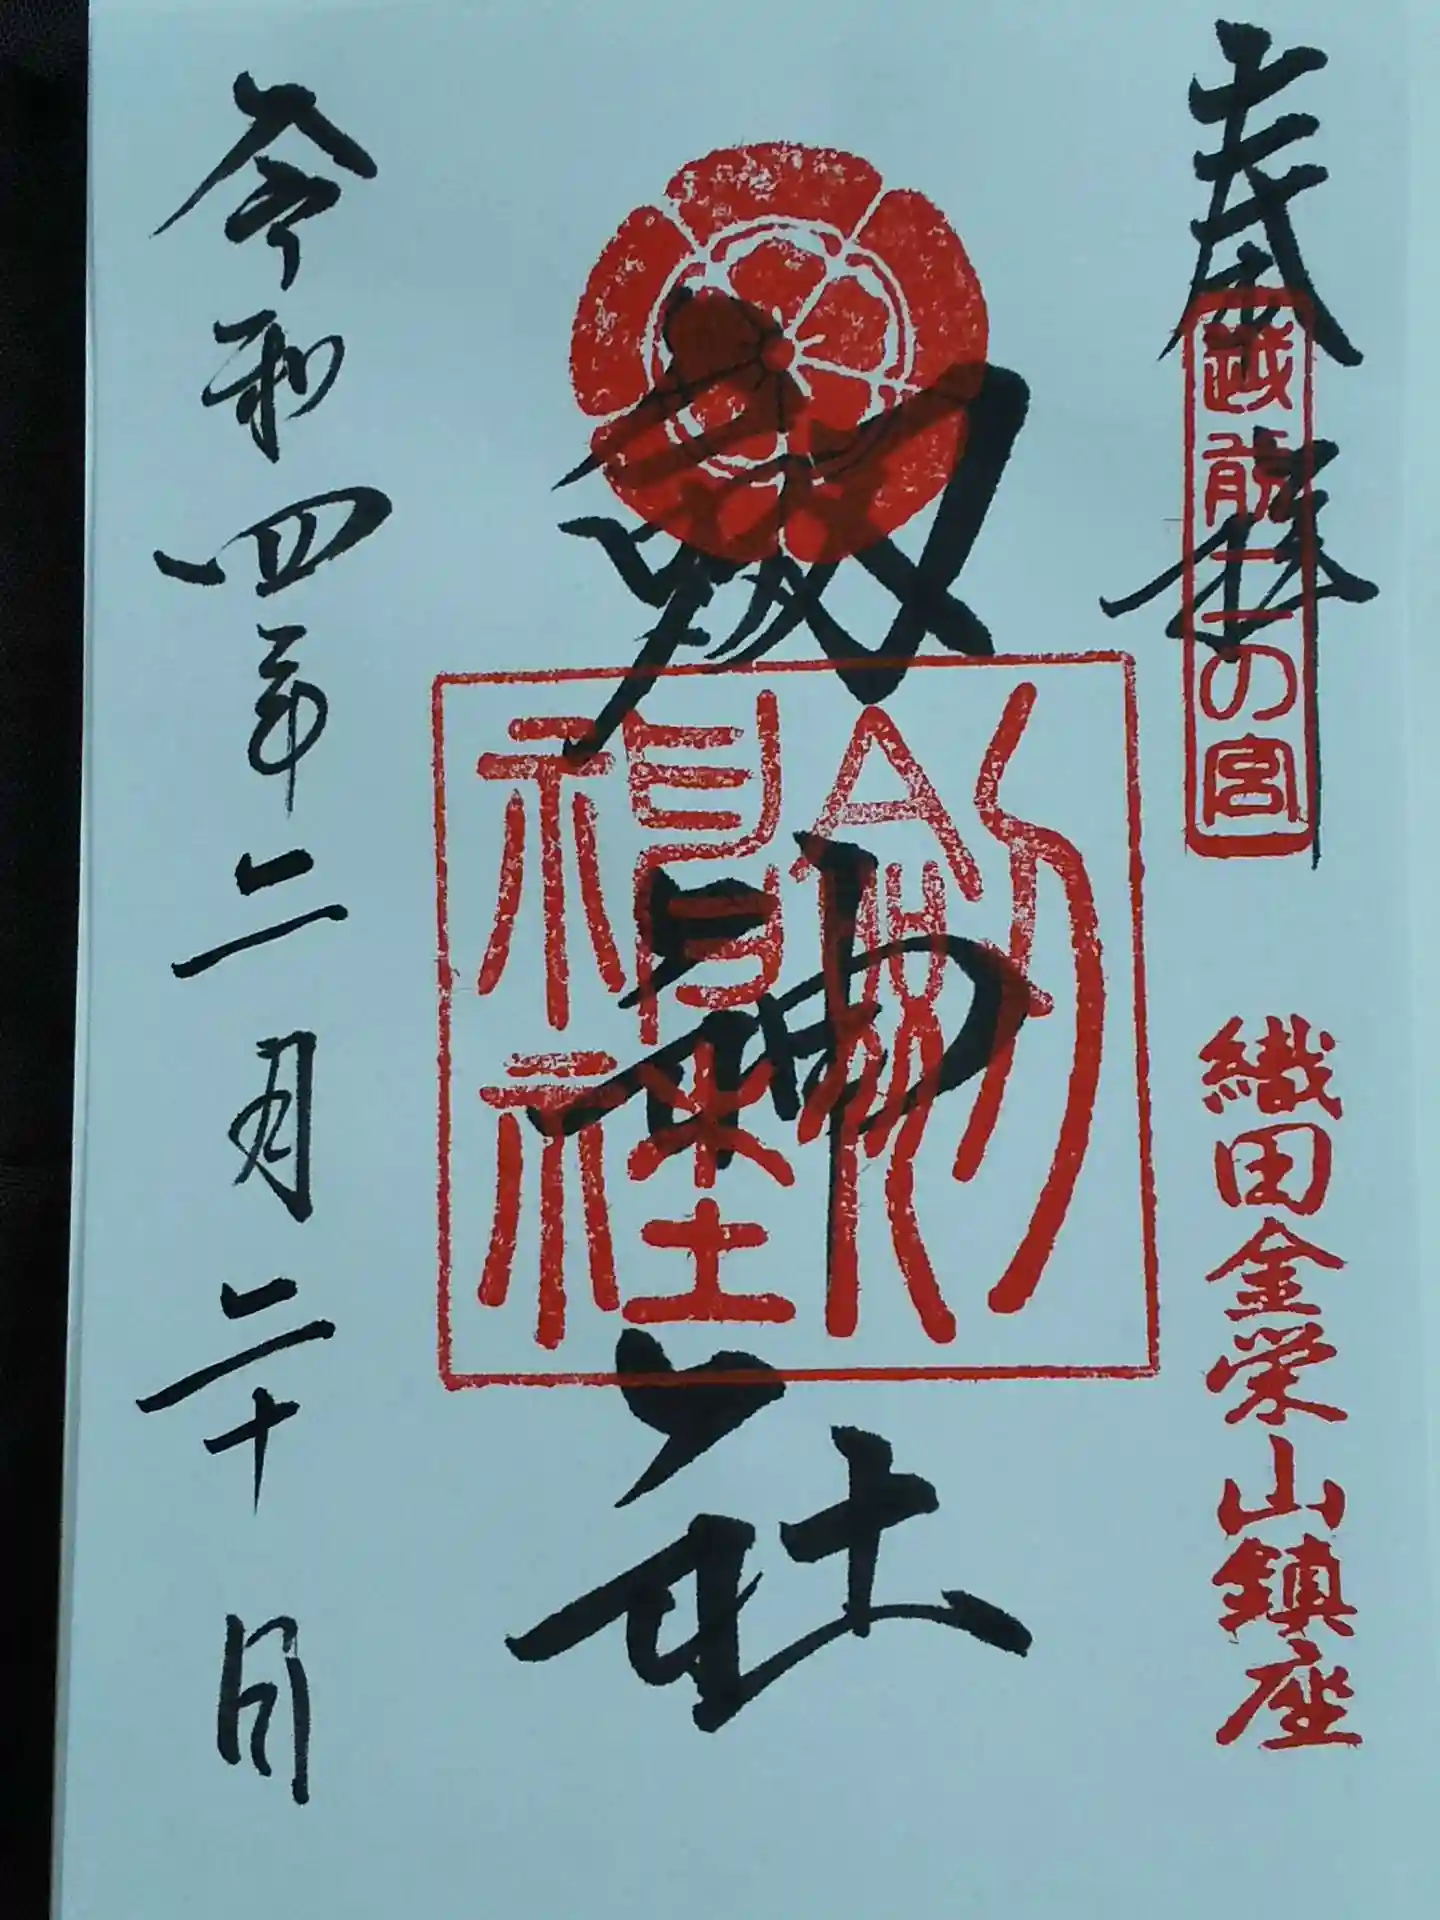 奉拝
越前二の宮
織田金栄山鎮座
劔神社
劔神社
令和四年二月二十日